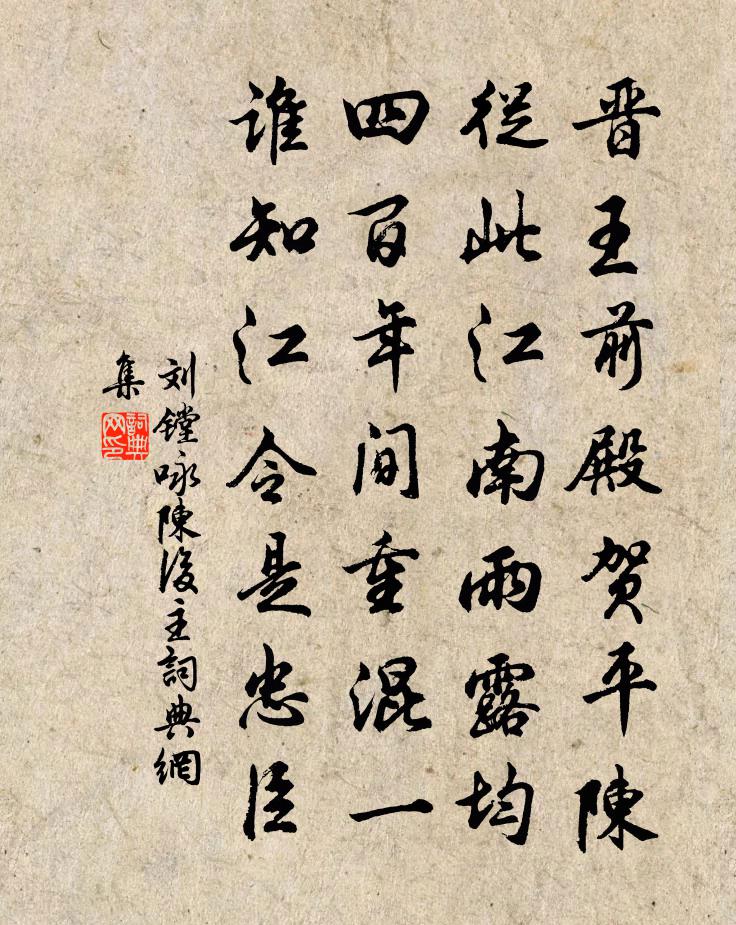 晋王前殿贺平陳
從此江南雨露均
四百年间重混一
誰知江令是忠臣
刘镗咏陳後主詞典網
集
詞典网印